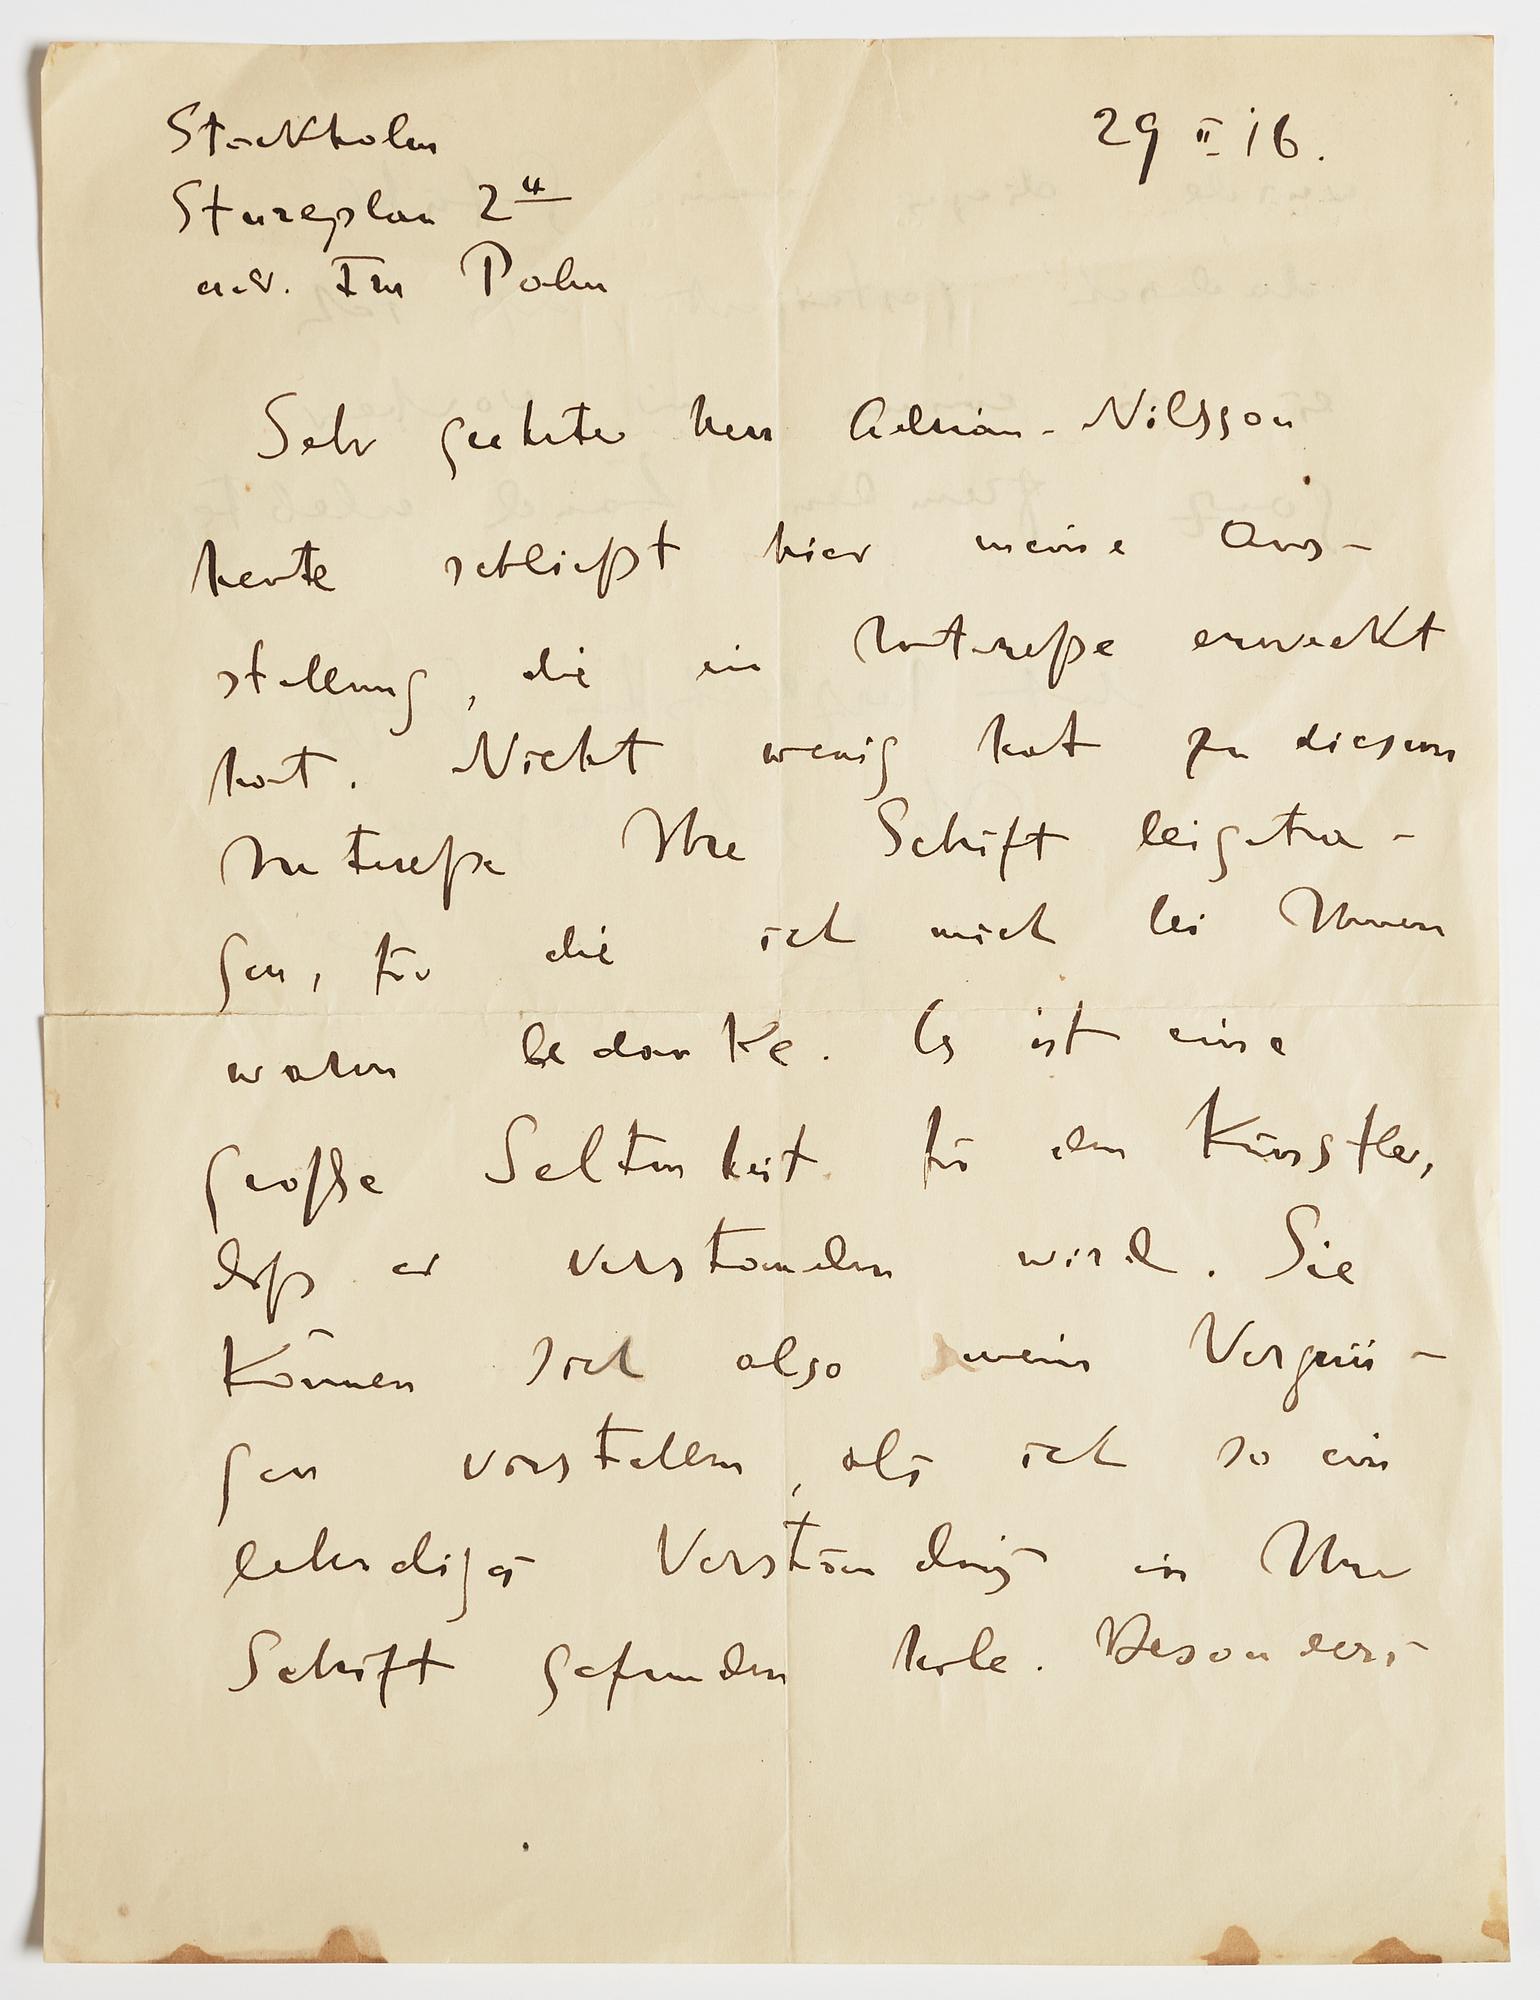 Stockholm
29 II 16.
Stureplan 2 4
Frl Palm
Sehr geehrter Herr Adrian-Nilsson
heute schließt hier meine Aus-
stellung, die ein Intereße erweckt
hat. Nicht wenig hat zu diesem
Intereße Ihre Schrift beigetra-
gen, für die ich mich bei Ihnen
warm bedanke. Es ist eine
große Seltenheit für den Künstler,
daß er verstanden wird. Sie
können sich also mein Vergnü-
gen vorstellen, als ich so ein
lebendiges Verständnis in Ihrer
Schrift gefunden habe. Besonders